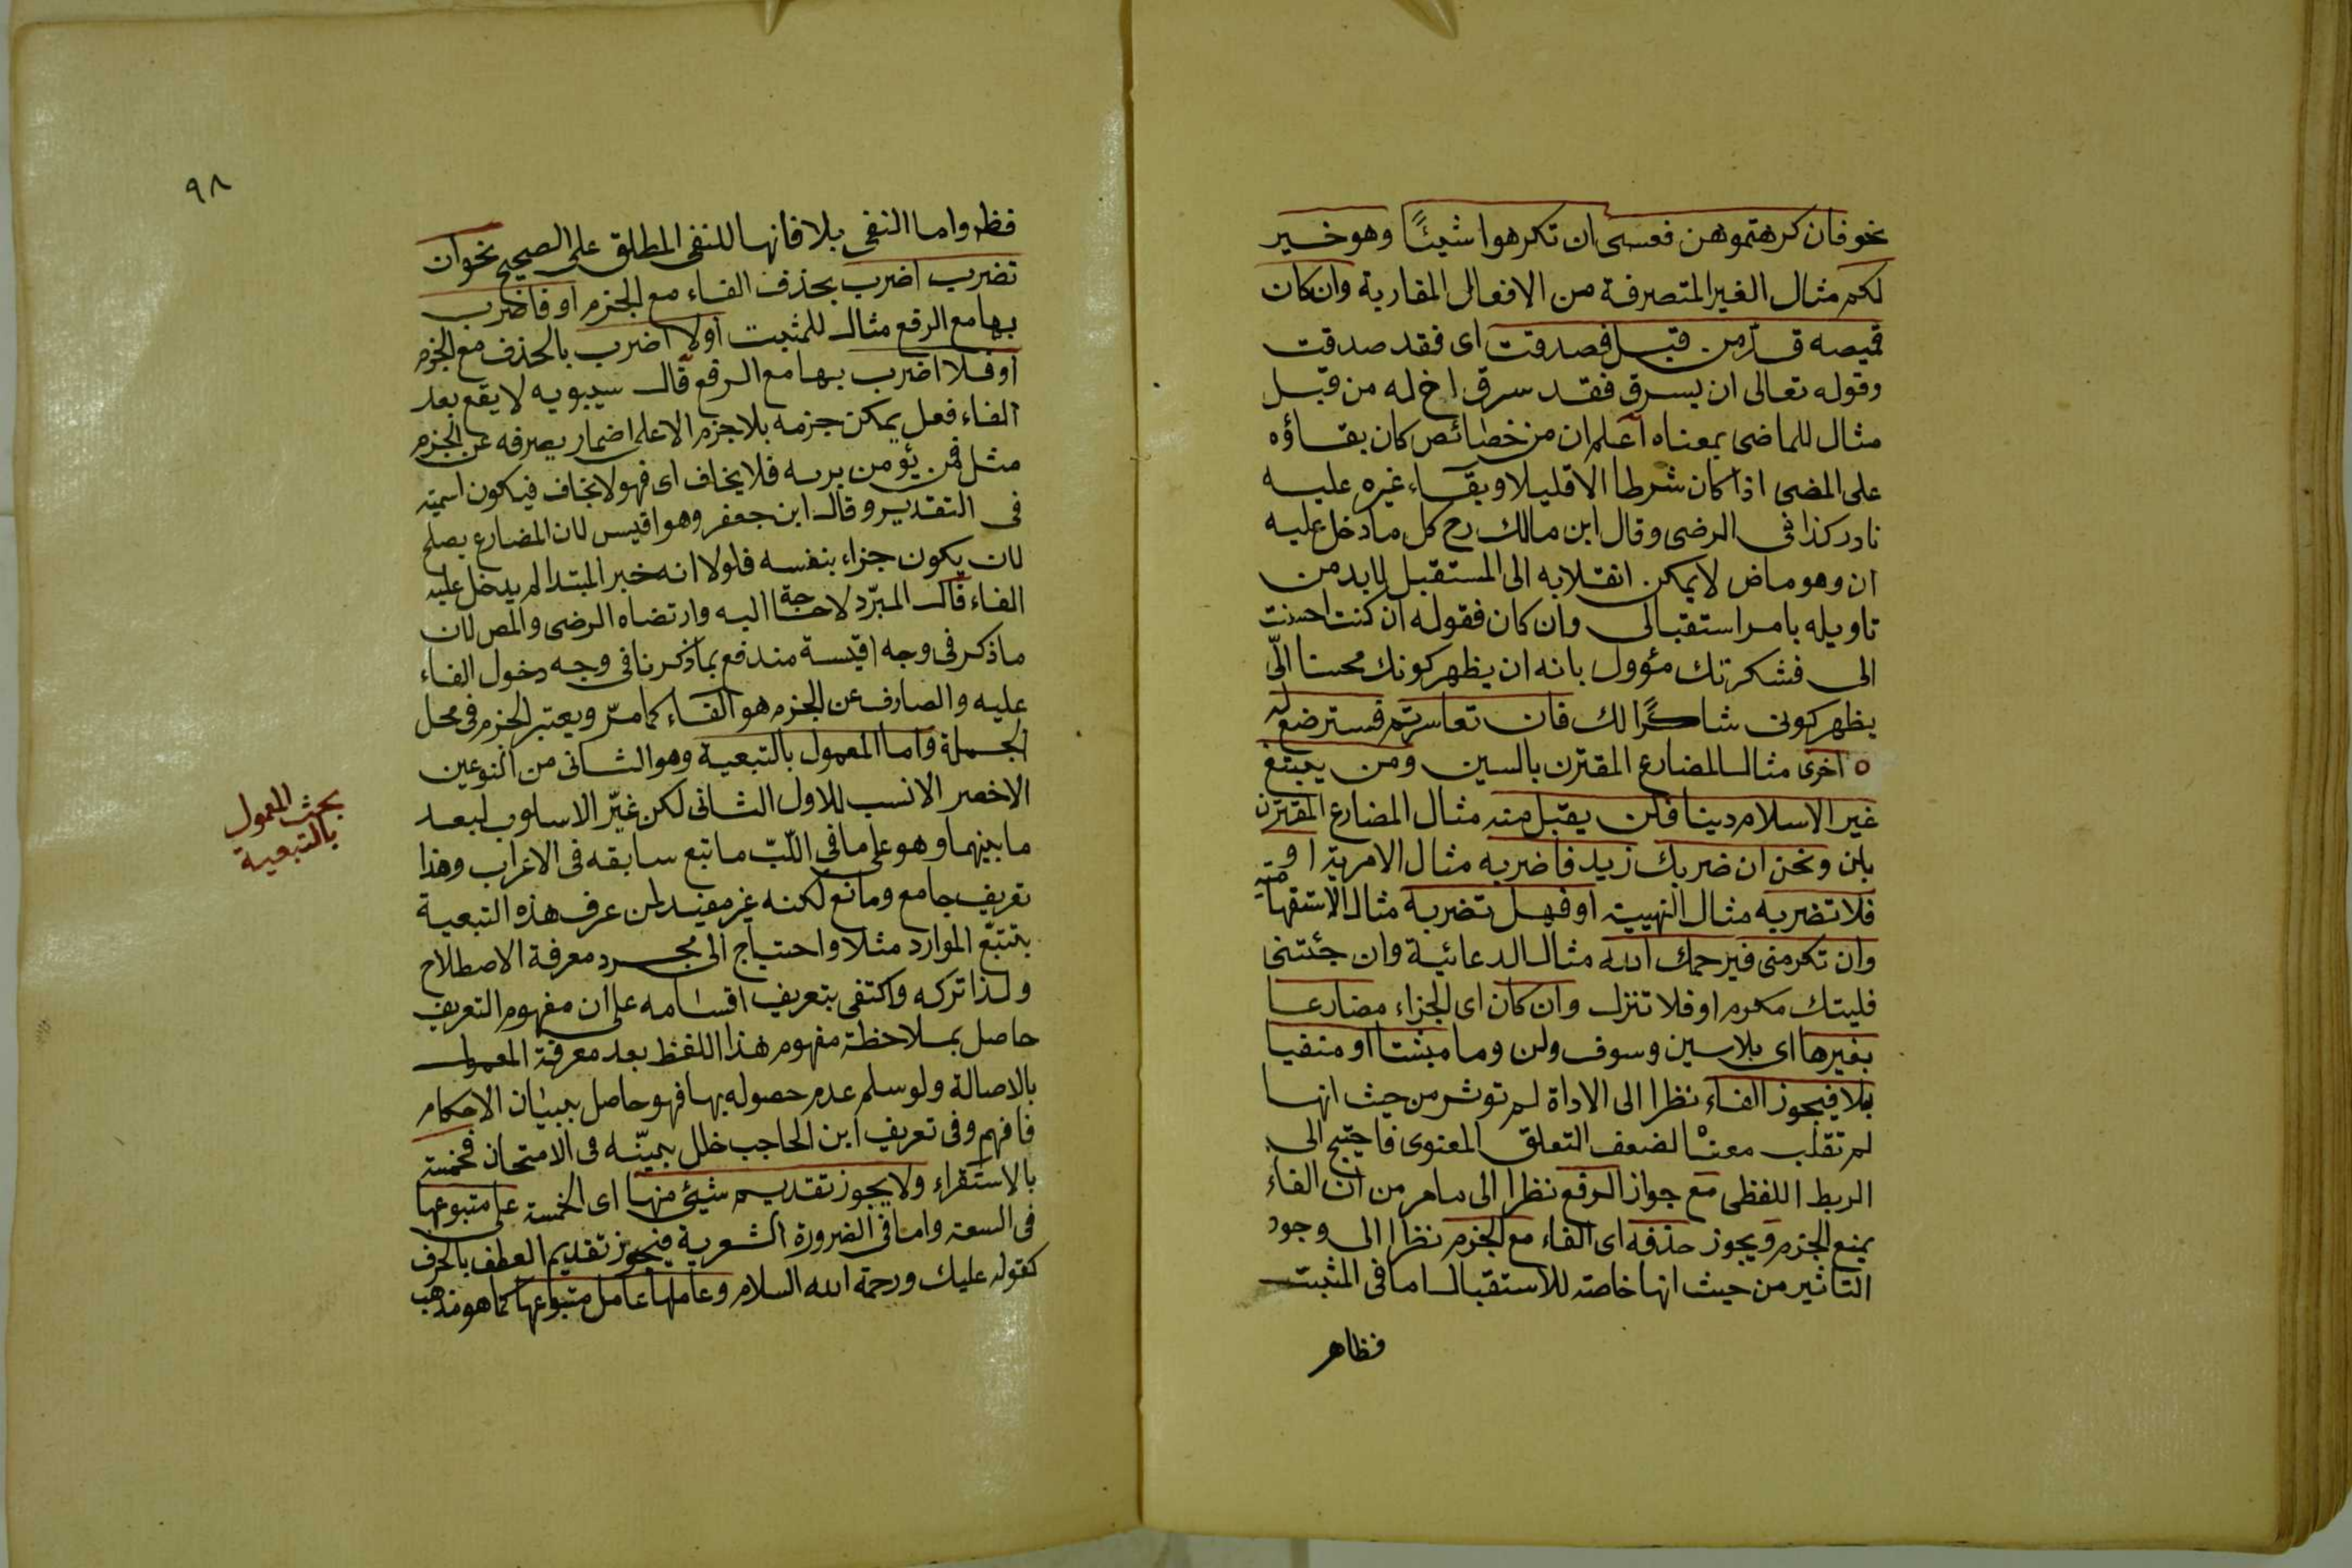 نحو فان كرهتموهن فعسى ان تكرهوا شيئًا وهو خير
لكم مثال الغير المتصرفة من الافعال المقاربة وان كان
قميصه قدّ من قبل فصدقت اى فقد صدقت
وقوله تعالى ان يسرق فقد سرق اخ له من قبل
مثال للماضى بمعناه اعلم ان من خصائص كان بقاؤه
على المضى اذا كان شرطا الا قليلا وبقاء غيره عليه
نادر كذا فى الرضى وقال ابن مالك رح كل ما دخل عليه
ان وهو ماض لا يمكن انقلابه الى المستقبل لابد من
تاويله بامر استقبالى وان كان فقوله ان كنت احسنت
الى فشكرتك مؤول بانه ان يظهر كونك محسنا الىّ
يظهر كونى شاكرًا لك فان تعاسرتم فسترضع له
اخرى مثال المضارع المقترن بالسين ومن يبتغ
غير الاسلام دينا فلن يقبل منه مثال المضارع المقترن
بلن ونحو ان ضربك زيد فاضربه مثال الامرية او
فلا تضربه مثال النهيية او فهل تضربه مثال الاستفهامية
وان تكرمنى فيرحمك الله مثال الدعائية وان جئتنى
فليتك مكرم او فلا تنزل وان كان اى الجزاء مضارعا
بغيرها اى بلا سين وسوف ولن وما مثبتا او منفيا
بلا فيجوز الفاء نظرا الى الاداة لم توثر من حيث انها
لم تقلب معناه لضعف التعلق المعنوى فاحتيج الى
الربط اللفظى مع جواز الرفع نظرا الى ما مر من ان الفاء
يمنع الجزم ويجوز حذفه اى الفاء مع الجزم نظرا الى وجود
التاثير من حيث انها خاصة للاستقبال اما فى المثبت
فظاهر
٩٨
فظ واما النفى بلا فانها للنفى المطلق على الصحيح نحو ان
تضرب اضرب بحذف الفاء مع الجزم او فاضرب
بها مع الرفع مثال للمثبت اولا اضرب بالحذف مع الجزم
او فلا اضرب بها مع الرفع قال سيبويه لا يقع بعد
الفاء فعل يمكن جزمه بلا جزم الا على اضمار يصرفه عن الجزم
مثل فمن يؤمن بربه فلا يخاف اى فهو لا يخاف فيكون اسمية
فى التقدير وقال ابن جعفر وهو اقيس لان المضارع يصلح
لان يكون جزاء بنفسه فلولا انه خبر المبتدا لم يدخل عليه
الفاء قال المبرّد لا حاجة اليه وارتضاه الرضى والمص لان
ما ذكر فى وجه اقيسة مندفع بما ذكرنا فى وجه دخول الفاء
عليه والصارف عن الجزم هو الفاء كما مرّ ويعتبر الجزم فى محل
الجملة واما المعمول بالتبعية وهو الثانى من النوعين
الاخصر الانسب للاول الثانى لكن غيّر الاسلوب لبعد
ما بينهما وهو على ما فى اللّبّ ما تبع سابقه فى الاعراب وهذا
تعريف جامع ومانع لكنه غير مفيد لمن عرف هذه التبعية
بتتبّع الموارد مثلا واحتياج الى مجرد معرفة الاصطلاح
ولذا تركه واكتفى بتعريف اقسامه على ان مفهوم التعريف
حاصل بملاحظة مفهوم هذا اللفظ بعد معرفة المعمول
بالاصالة ولو سلم عدم حصوله بها فهو حاصل ببيان الاحكام
فافهم وفى تعريف ابن الحاجب خلل بيّنه فى الامتحان فخمسة
بالاستقراء ولا يجوز تقديم شيئ منها اى الخمسة على متبوعها
فى السعة واما فى الضرورة الشعرية فيجوز تقديم العطف بالحرف
كقوله عليك ورحمة الله السلام وعاملها عامل متبوعها كما هو مذهب
بحث المعمول
بالتبعية